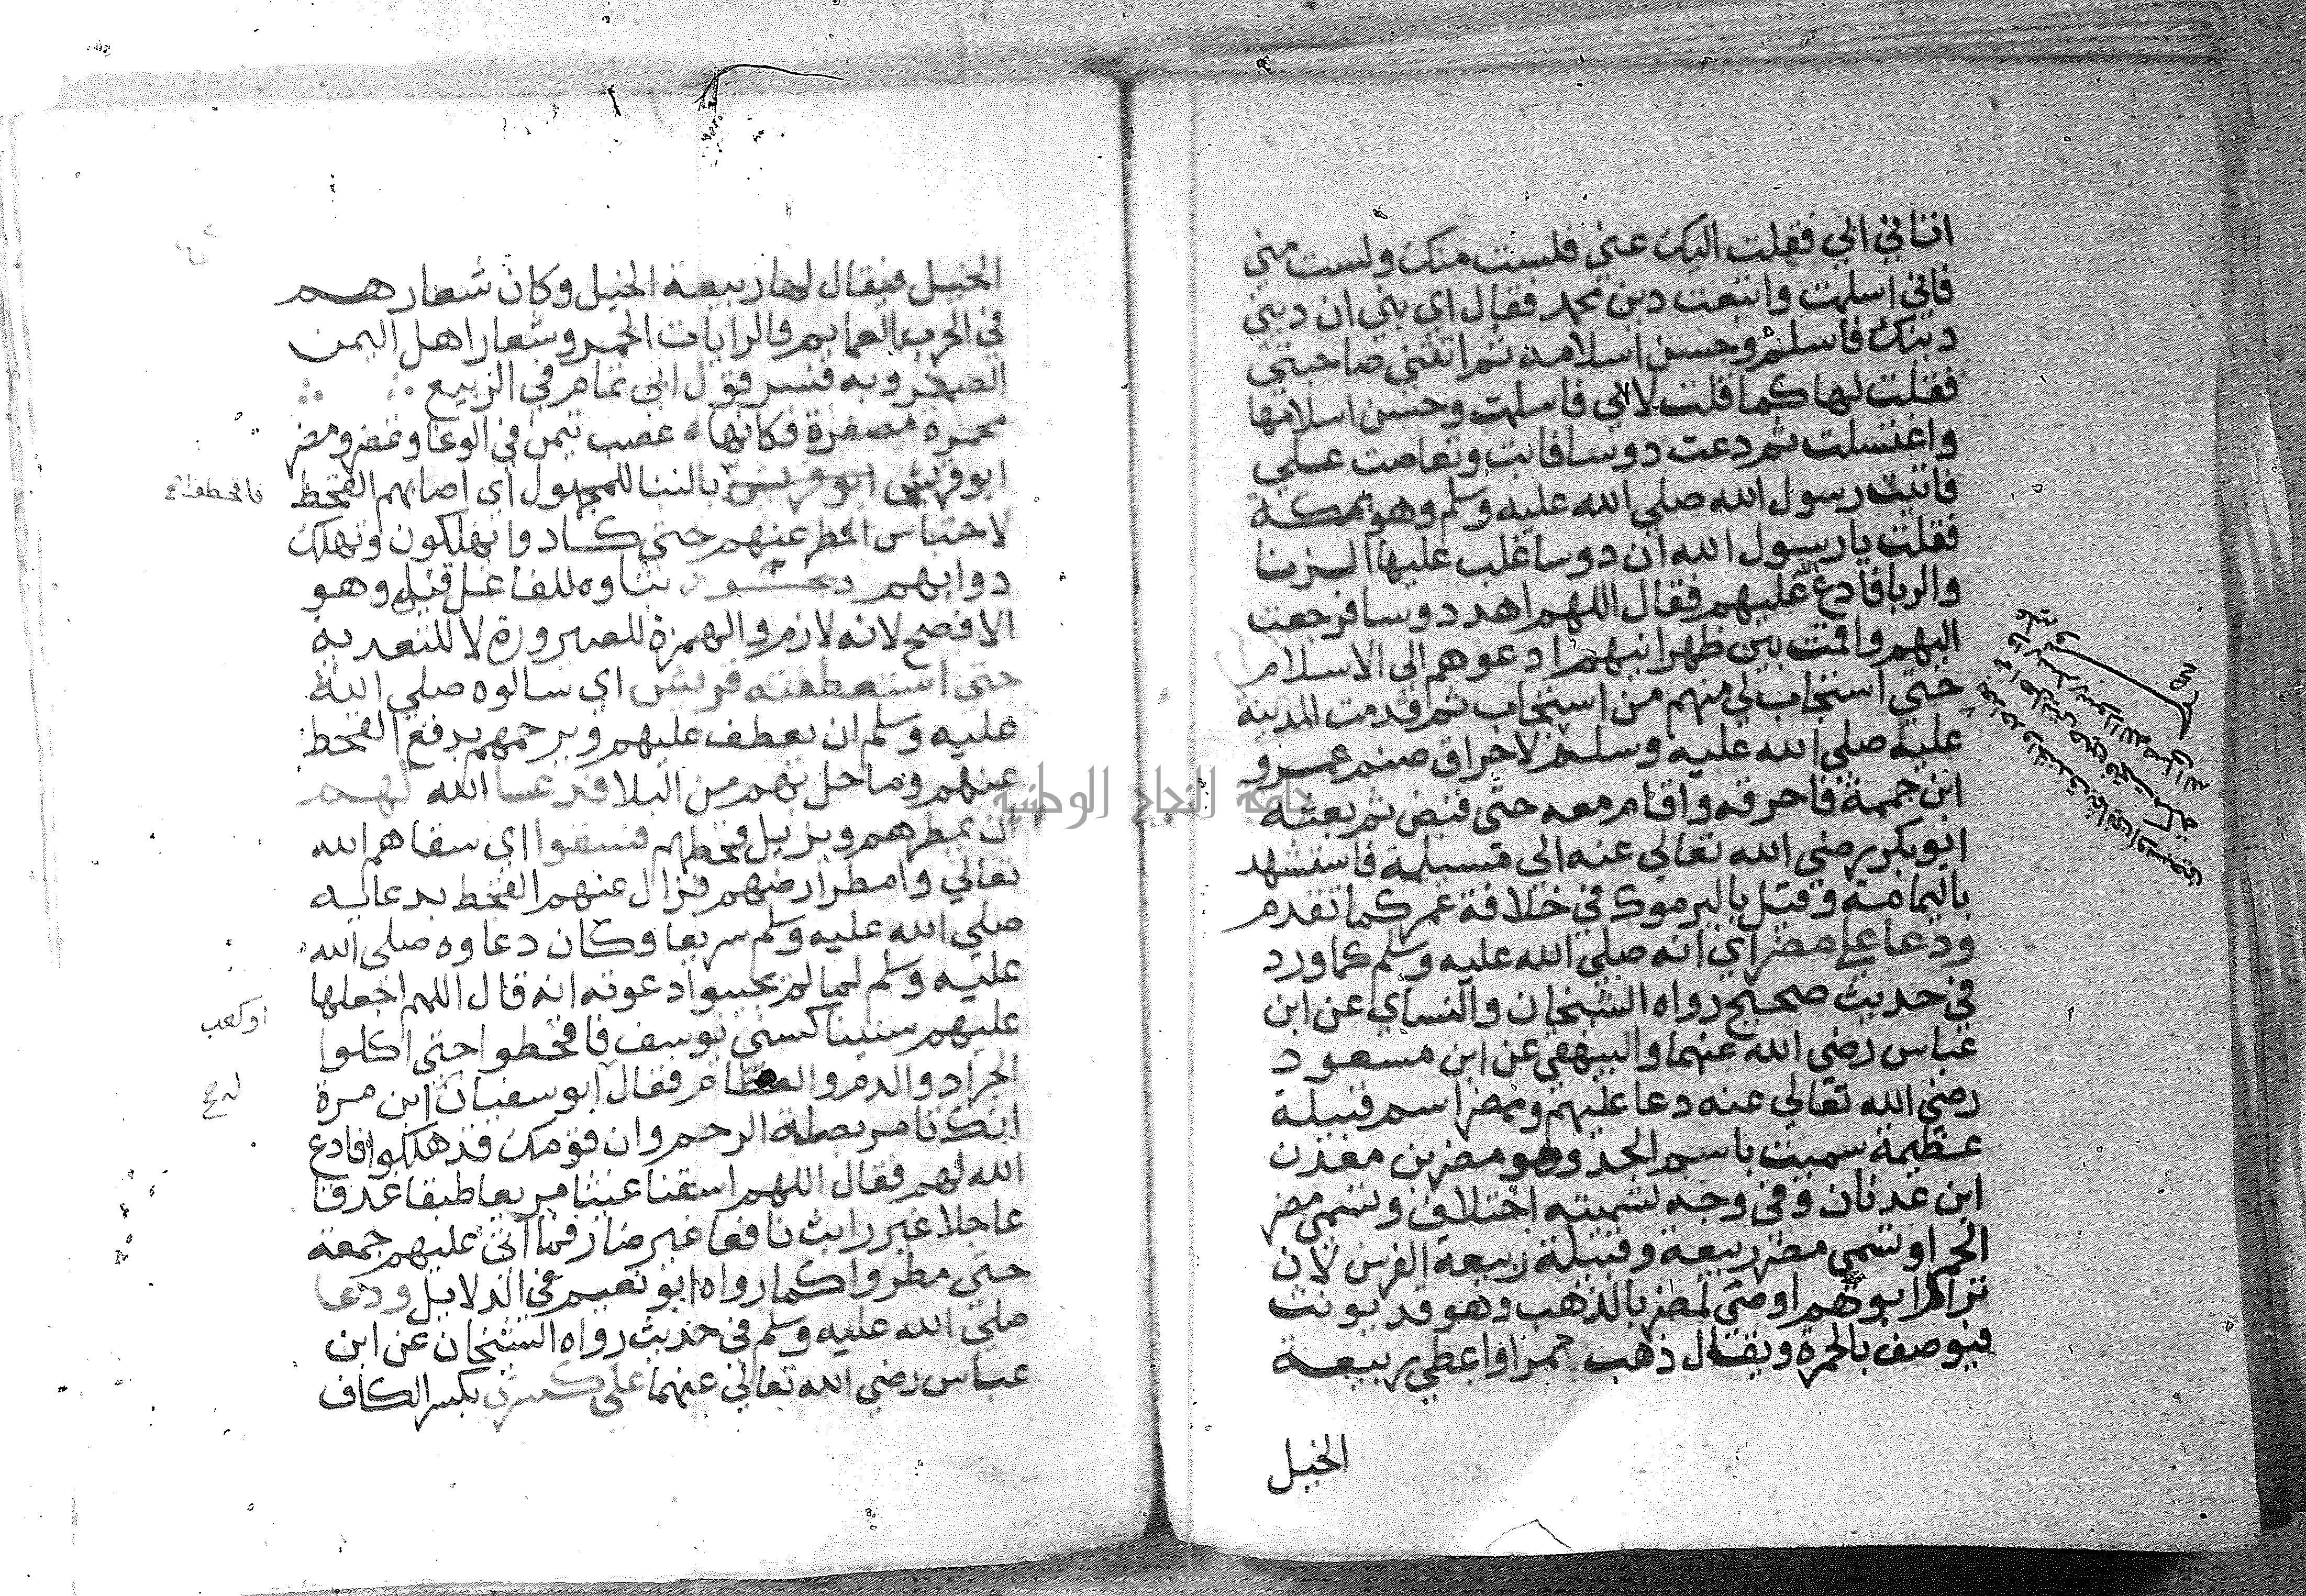 اتاني ابي فقلت اليك عني فلست منك ولست مني
فاني اسلمت واتبعت دين محمد فقال اي بني ان ديني
دينك فاسلم وحسن اسلامه ثم اتتني صاحبتي
فقلت لها كما قلت لابي فاسلمت وحسن اسلامها
واغتسلت ثم دعت دوسا فابت وتعاصت علي
فاتيت رسول الله صلي الله عليه وسلم وهو بمكة
فقلت يا رسول الله ان دوسا غلب عليها الزنا
والربا فادع الله عليهم فقال اللهم اهد دوسا فرجعت
اليهم واقمت بين ظهرانيهم ادعوهم الي الاسلام
حتي استجاب لي منهم من استجاب ثم قدمت المدينة
عليه صلي الله عليه وسلم لاحراق صنم عمرو
ابن حممة فاحرقه واقام معه حتي قبض ثم بعثه
ابو بكر رضي الله تعالي عنه الي مسيلمة فاستشهد
باليمامة وقتل باليرموك في خلافة عمر كما تقدم
ودعا علي مضر اي انه صلي الله عليه وسلم كما ورد
في حديث صحيح رواه الشيخان والنساي عن ابن
عباس رضي الله عنهما والبيهقي عن ابن مسعود
رضي الله تعالي عنه دعا عليهم ومضر اسم قبيلة
عظيمة سميت باسم الجد وهو مضر بن معد بن
ابن عدنان وفي وجه تسميته اختلاف وتسمي مضر
الحمرا وتسمي مضر ربيعة وقبيلة ربيعة الفرس لان
نزارا ابوهم اوصي لمضر بالذهب وهو قد يونث
فيوصف بالحمرة ويقال ذهب حمرا واعطي ربيعة
الخيل
الخيل فيقال لها ربيعة الخيل وكان شعارهم
في الحرب العمايم والرايات الحمر وشعار اهل اليمن
الصفر وبه فسر قول ابي تمام في الربيع
محمرة مصفرة فكانها عصب تيمن في الوغا وتمضر ومضر
ابو قريش بالبنا للمجهول اي اصابهم القحط
فاقحطوا صح
لاحتباس المطر عنهم حتي كادوا يهلكون وتهلك
دوابهم بناوه للفاعل قيل وهو
الافصح لانه لازم والهمزة للصيرورة لا للتعدية
حتي استعطفته قريش اي سالوه صلي الله
عليه وسلم ان يعطف عليهم ويرحمهم برفع القحط
عنهم وما حل بهم من البلا فدعا الله لهم
ان يمطرهم ويزيل قحطهم فسقوا اي سقاهم الله
تعالي وامطر ارضهم فزال عنهم القحط بدعايه
صلي الله عليه وسلم سريعا وكان دعاوه صلي الله
عليه وسلم لما لم يجيبوا دعوته انه قال اللهم اجعلها
عليهم سنينا كسني يوسف فاقحطوا حتي اكلوا
الجراد والدم والعظام فقال ابو سفيان ابن مرة
او كعب
انك تامر بصلة الرحم وان قومك قد هلكوا فادع
الله لهم فقال اللهم اسقنا غيثا مريعا طبقا غدقا
عاجلا غير رايث نافعا غير ضار فما اتي عليهم جمعة
حتي مطروا كما رواه ابو نعيم في الدلايل ودعا
صلي الله عليه وسلم في حديث رواه الشيخان عن ابن
عباس رضي الله تعالي عنهما علي كسري بكسر الكاف
جامعة النجاح الوطنية